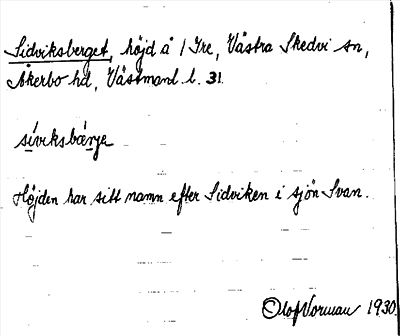 Sidviksberget, höjd å 1 Ire, Västra Skedvi sn,
Åkerbo hd, Västmanl. l. 31.
síviksbærje
Höjden har sitt namn efter Sidviken i sjön Svan.
Olof Vorman 1930.